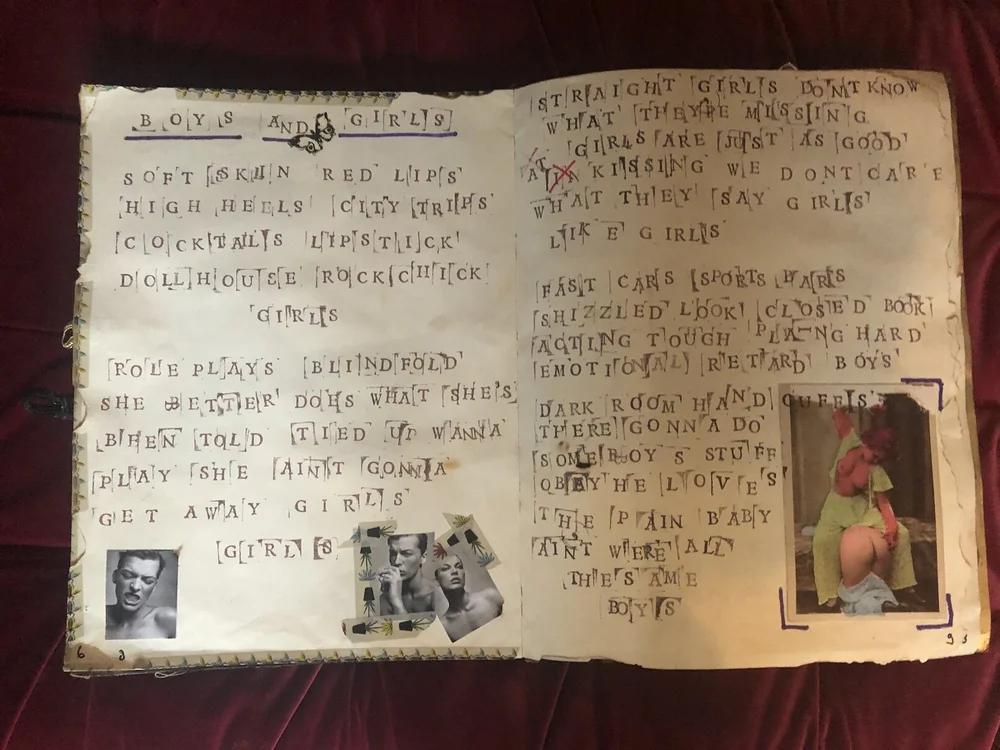 BOYS AND GIRLS
SOFT SKIN RED LIPS
HIGH HEELS CITY TRIPS
COCKTAILS LIPSTICK
DOLLHOUSE ROCK CHICK
GIRLS
ROLE PLAYS BLINDFOLD
SHE BETTER DOES WHAT SHE'S
BEEN TOLD TIED UP WANNA
PLAY SHE AIN'T GONNA
GET AWAY GIRLS
GIRLS
6
STRAIGHT GIRLS DON'T KNOW
WHAT THEY'RE MISSING
GIRLS ARE JUST AS GOOD
AT KISSING WE DONT CARE
WHAT THEY SAY GIRLS
LIKE GIRLS
FAST CARS SPORTS BARS
SHIZZLED LOOK CLOSED BOOK
ACTING TOUGH PLAING HARD
EMOTIONAL RETARD BOYS
DARK ROOM HAND CUFFIS
THERE GONNA DO
SOME BOYS STUFF
OBEY HE LOVES
THE PAIN BABY
AIN'T WERE ALL
THE SAME
BOYS